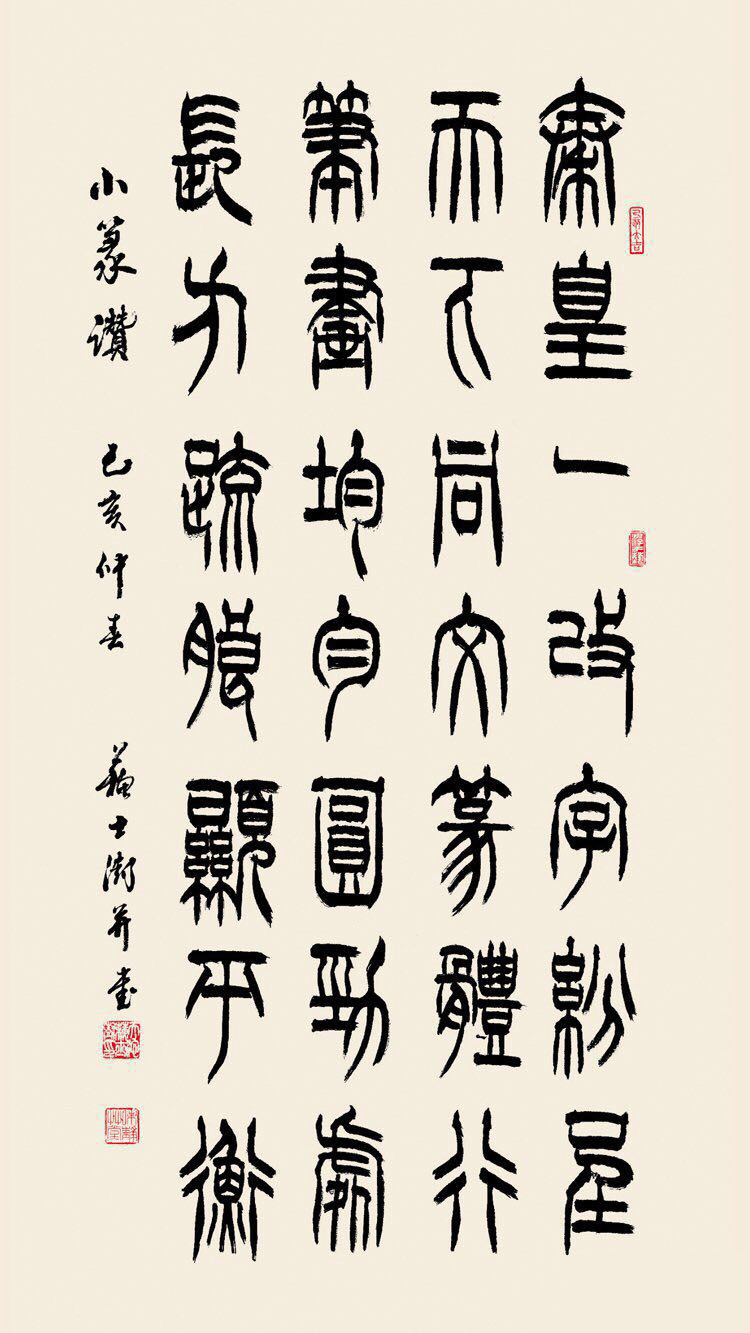 秦皇一改字紛呈
而下同文篆體行
筆畫均勻圓勁處
長方疏朗顯平衡
小篆讚 己亥仲春 蘇士澍并書